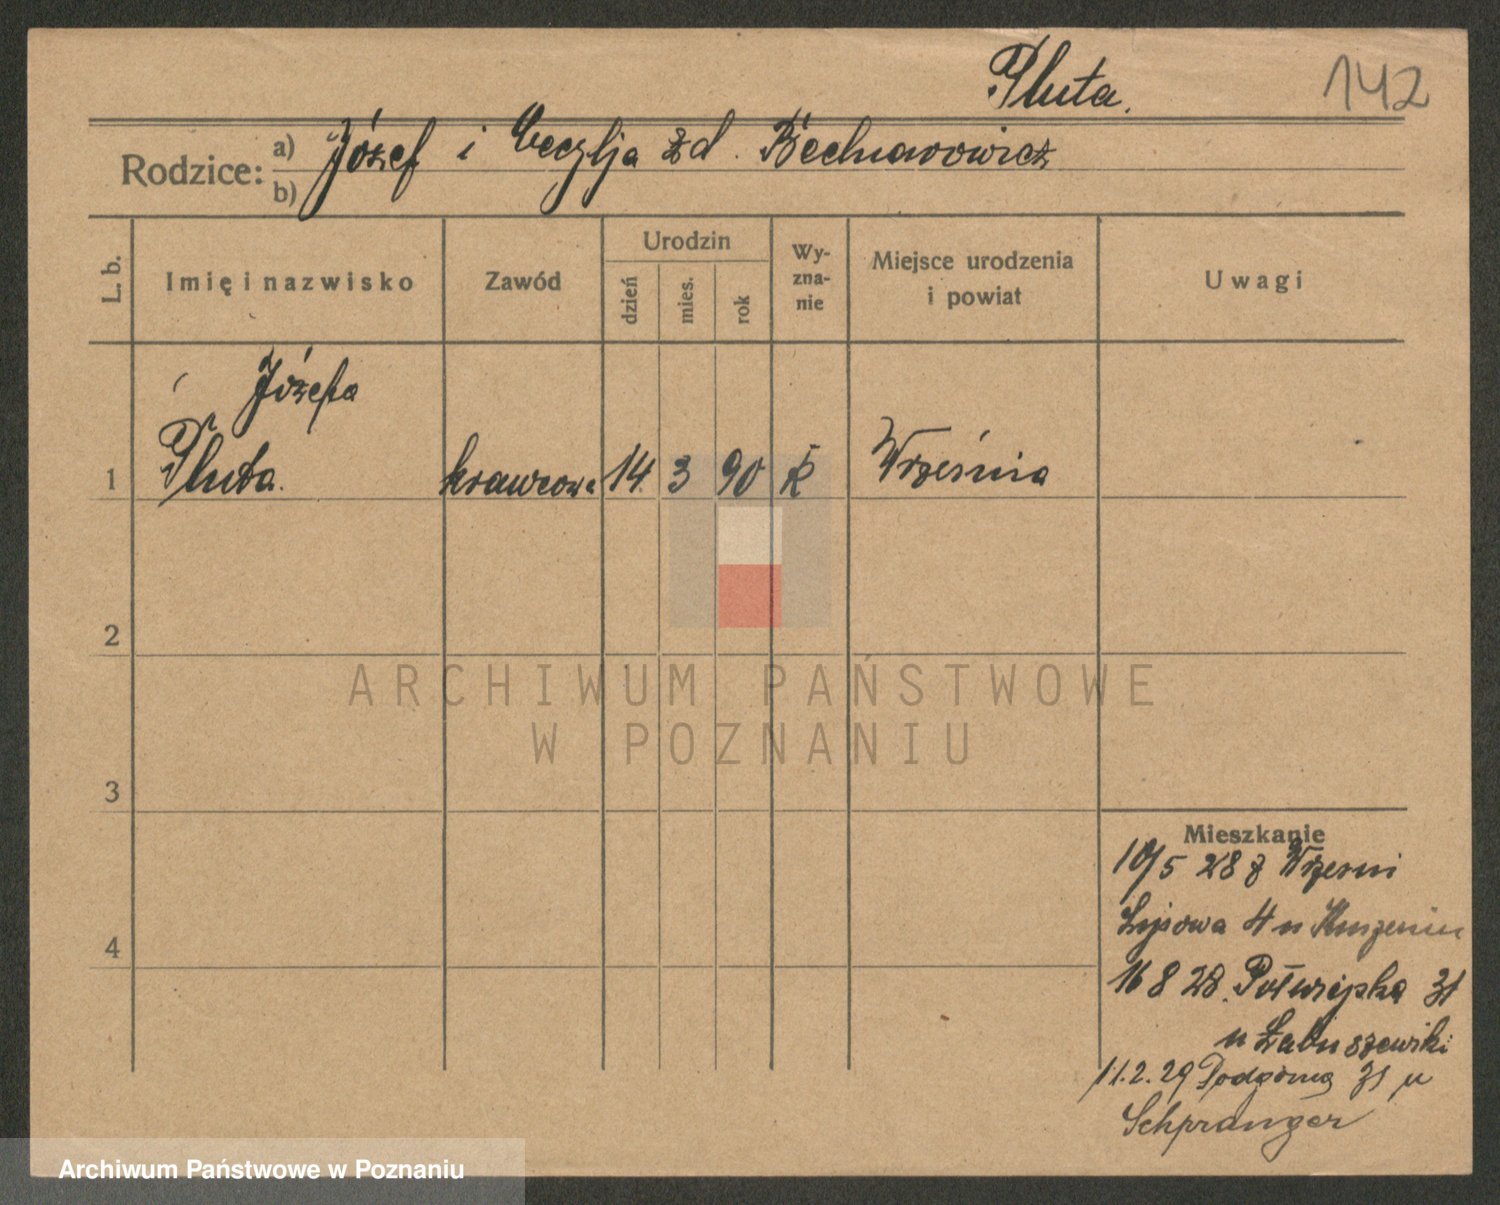 Pluta.
142
Rodzice: a) Józef i Cecylja zd. Bechnarowicz
b)
L. b.
Imię i nazwisko
Zawód
Urodzin
dzień
mies.
rok
Wy-
zna-
nie
Miejsce urodzenia
i powiat
Uwagi
Józefa
1 Pluta. krawcowa 14. 3 90 k Września
2
3
4
Mieszkanie
10/5 28 z Wrześni
16 8 28. Półwiejska 31
u Łabuszewski
11.2.29 Podgórna 31 u
Schpranger
ARCHIWUM PAŃSTWOWE
W POZNANIU
Archiwum Państwowe w Poznaniu